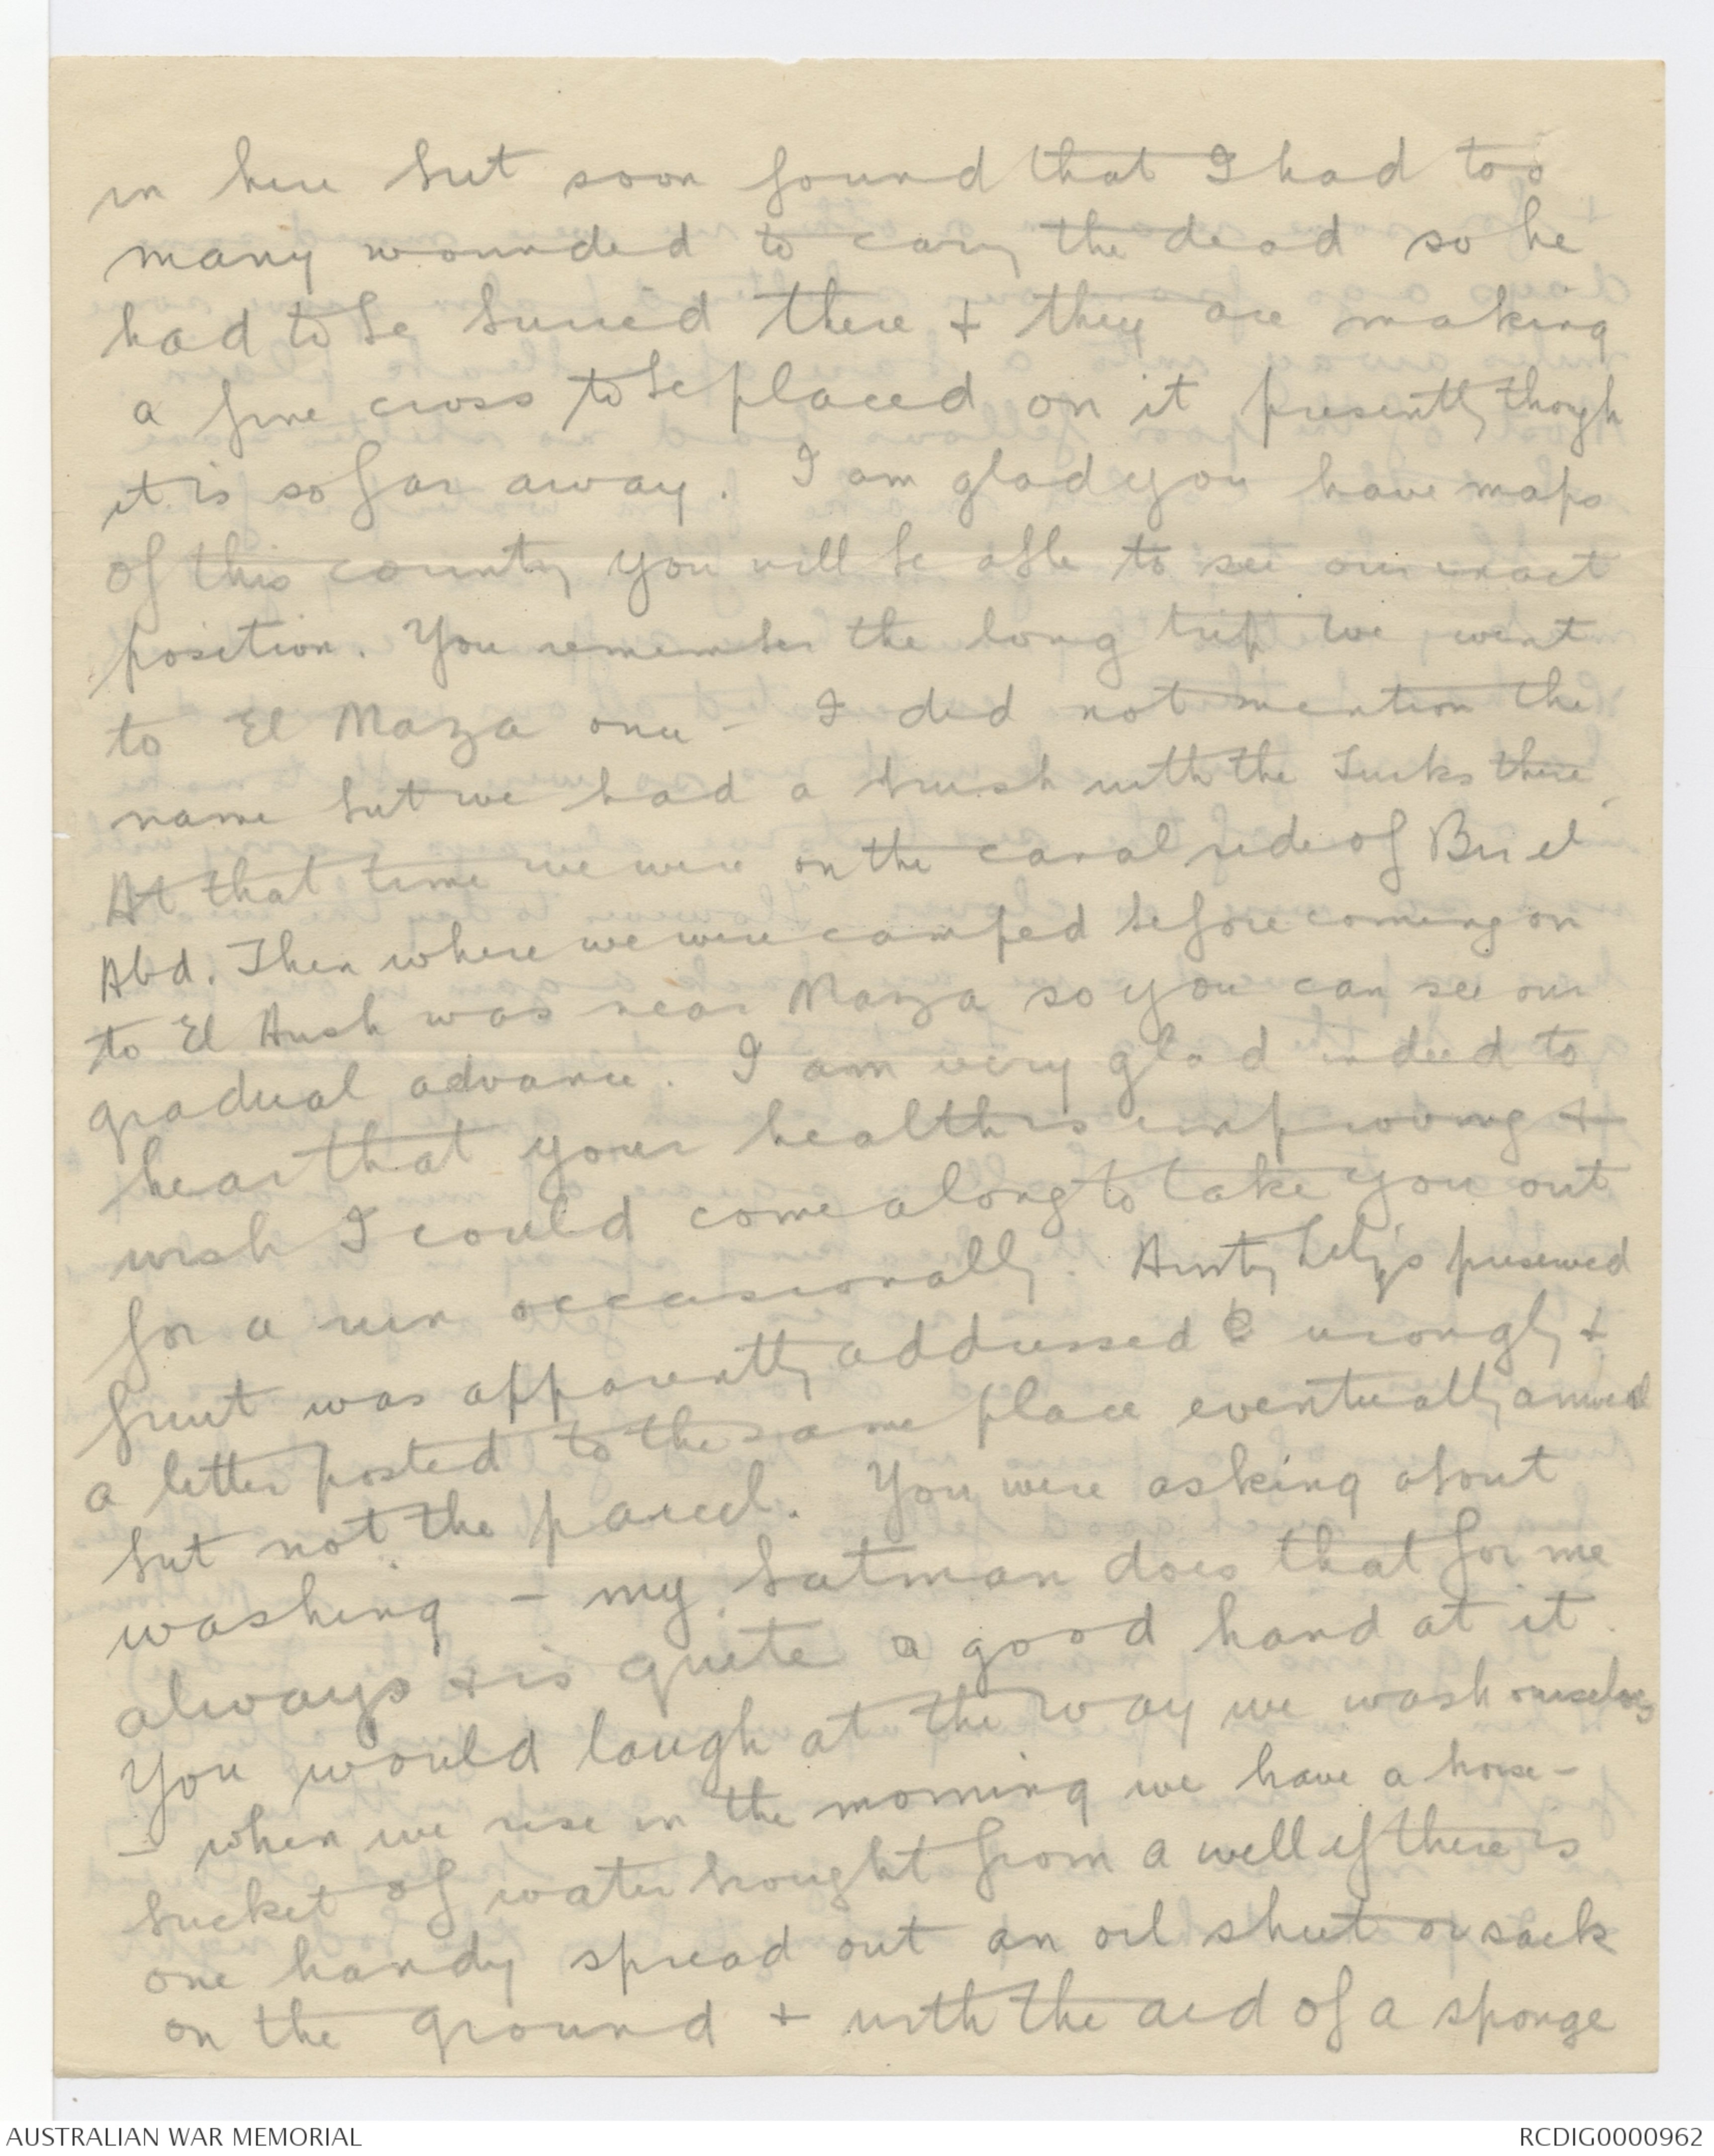 in here but soon found that I had too
many wounded to carry the dead so he
had to be buried there + they are making
a fine cross to be placed on it presently though
it is so far away. I am glad you have maps
of this country you will be able to see our exact
position. You remember the long trip we went
to El Maza once - I did not mention the
name but we had a brush with the Turks there.
At that time we were on the canal side of Bir el
Abd. Then where we were camped before coming on
to El Arish was near Maza so you can see our
gradual advance. I am very glad indeed to
hear that your health is improving +
wish I could come along to take you out
for a run occasionally. Aunty Lily's preserved
fruit was apparently addressed wrongly +
a letter posted to the same place eventually arrived
but not the parcel. You were asking about
washing - my batman does that for me
always + is quite a good hand at it.
You would laugh at the way we wash ourselves
- when we rise in the morning we have a horse-
bucket of water brought from a well if there is
one handy spread out an oil sheet or sack
on the ground + with the aid of a sponge
AUSTRALIAN WAR MEMORIAL
RCDIG0000962